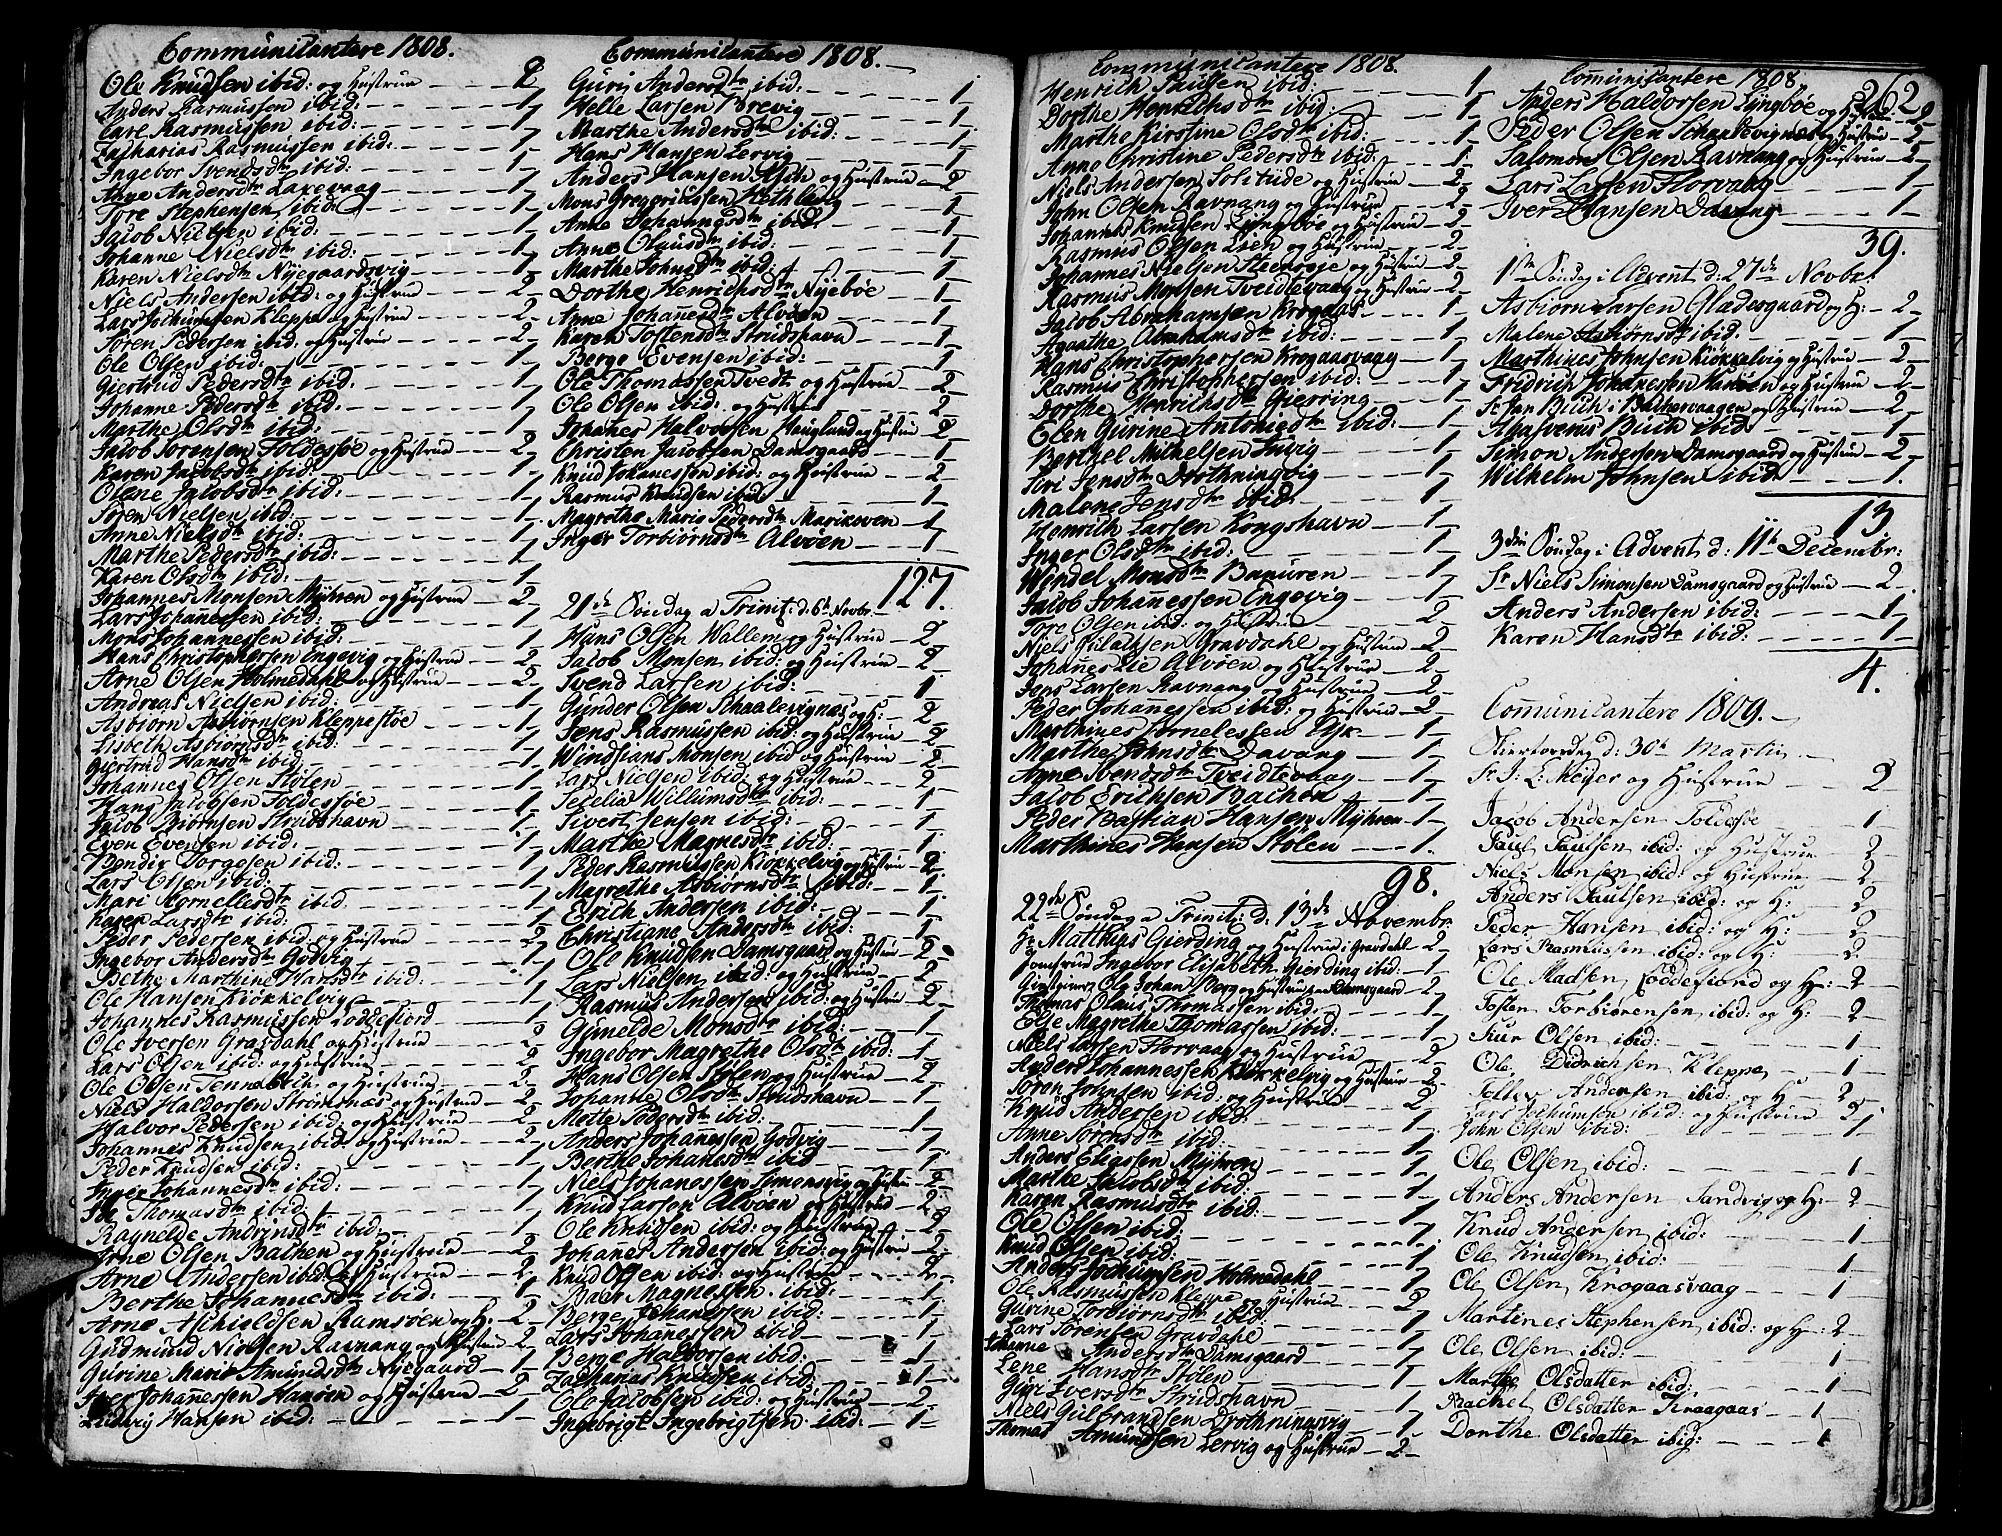 Communicantere 1808.
Ole Knudsen ibid: og Hustrue - - - 2
Anders Rasmussen ibid: - - - 1
Carl Rasmussen ibid: - - - 1
Zacharias Rasmussen ibid: - - - 1
Ingebor Svendsdtr ibid: - - - 1
Anne Andersdtr Laxevaag - - - 1
Tore Stephensen ibid: - - - 1
Jacob Nielsen ibid: - - - 1
Johanne Nielsdtr ibid: - - - 1
Karen Nielsdtr Nyegaardsvig - - - 1
Niels Andersen ibid: og Hustrue - - - 2
Lars Jochumsen Kleppe og Hustrue - - - 2
Søren Pedersen ibid: og Hustrue - - - 2
Ole Olsen ibid: - - - 1
Giertrud Pedersdtr ibid: - - - 1
Johanne Pedersdtr ibid: - - - 1
Marthe Olsdtr ibid: - - - 1
Jacob Sørensen Foldesøe og Hustrue - - - 2
Karen Jacobsdtr ibid: - - - 1
Olene Jacobsdtr ibid: - - - 1
Søren Nielsen ibid: - - - 1
Anne Nielsdtr ibid: - - - 1
Marthe Pedersdtr ibid: - - - 1
Karen Olsdtr ibid: - - - 1
Johannes Monsen Myhren og Hustrue - - - 2
Lars Johannessen ibid: - - - 1
Mons Johannessen ibid: - - - 1
Hans Christophersen Ingevig og Hustrue - - - 2
Arne Olsen Holmedahl og Hustrue - - - 2
Andreas Nielsen ibid: - - - 1
Asbiørn Asbiørnsen Kleppestøe - - - 1
Lisbeth Asbiørnsdtr ibid: - - - 1
Giertrud Hansdtr ibid: - - - 1
Johannes Olsen Stølen - - - 1
Hans Jacobsen Foldesøe - - - 1
Jacob Biørnsen Strudshavn - - - 1
Even Evensen ibid: - - - 1
Bendix Torgesen ibid: - - - 1
Lars Olsen ibid: - - - 1
Mari Kornelisdtr ibid: - - - 1
Karen Larsdtr ibid: - - - 1
Peder Pedersen ibid: og Hustrue - - - 2
Ingebor Andersdtr Godvig - - - 1
Bethe Marthine Hansdtr ibid: - - - 1
Ole Hansen Kiøkkelvig - - - 1
Johannes Rasmussen Loddefiord - - - 1
Ole Iversen Grasdahl og Hustrue - - - 2
Lars Olsen ibid: og Hustrue - - - 2
Ole Olsen Tennebech og Hustrue - - - 2
Niels Haldorsen Strømsnæs og Hustrue - 2
Halvor Pedersen ibid: og Hustrue - - - 2
Johannes Knudsen ibid: og Hustrue - - - 2
Peder Knudsen ibid: - - - 1
Inger Johannesdtr ibid: - - - 1
Thomasdtr ibid: - - - 1
Ragnelde Andrinsdtr ibid: - - - 1
Arne Olsen Bakken og Hustrue - - - 2
Arne Andersen ibid: og Hustrue - - - 2
Berthe Johannesdtr ibid: - - - 1
Arne Aschieldsen Ramsøen og H: - 2
Gudmund Nielsen Ravnang og Hustrue 2
Gurine Marie Amundsdtr Nyegaard - 1
Iver Johannessen Hanøen og Hustrue - 2
Ludvig Hansen ibid: - - - 1
Communicantere 1808.
Guri Andersdtr ibid: - - - 1
Helle Larsen Brevig - - - 1
Marthe Andersdtr ibid: - - - 1
Hans Hansen Lervig - - - 1
Anders Hansen Ask og Hustrue - 2
Mons Gregoriussen Kethlevig - - 1
Anne Johannesdtr ibid: - - - 1
Anne Olausdtr ibid: - - - 1
Marthe Johnsdtr ibid: - - - 1
Dorthe Henrichsdtr Nyebøe - - - 1
Anne Johanesdtr Alvøen - - - 1
Karen Tostensdtr Strudshavn - - - 1
Berge Evensen ibid: - - - 1
Ole Thomassen Tvedt og Hustrue - 2
Ole Olsen ibid: og Hustrue - - - 2
Johanes Halvorsen Haugland og Hustrue 2
Christen Jacobsen Damsgaard - 1
Knud Johanessen ibid: og Hustrue - 2
Rasmus Knudsen ibid: - - - 1
Magrethe Marie Pedersdtr Marikoven - 1
Inger Torbiørnsdtr Alvøen - - - 1
127.
21de Søndag a Trinit: d: 6te Novbr.
Hans Olsen Wallem og Hustrue - 2
Jacob Monsen ibid: og Hustrue - 2
Svend Larsen ibid: - - - 1
Gunder Olsen Skaalevignæs og H: - 2
Jens Rasmussen ibid: og Hustrue - 2
Windsians Monsen ibid og Hustrue - 2
Lars Nielsen ibid: og Hustrue - 2
Secelia Willumsdtr ibid: - - - 1
Sivert Jensen ibid: - - - 1
Marthe Magnesdtr ibid: - - - 1
Peder Rasmussen Kiøkkelvig og Hustrue 2
Magrethe Asbiørnsdtr ibid: - - - 1
Erich Andersen ibid: - - - 1
Christiane Andersdtr ibid: - - - 1
Ole Knudsen Damsgaard og Hustrue - 2
Lars Nielsen ibid: og Hustrue - 2
Rasmus Andersen ibid: og Hustrue - 2
Gunelde Monsdtr ibid: - - - 1
Ingebor Magrethe Olsdtr ibid: - 1
Hans Olsen Stølen og Hustrue - 2
Johanne Olsdtr Strudshavn - 1
Mette Pedersdtr ibid: - - - 1
Anders Johanessen Godvig - - - 1
Berthe Johanesdtr ibid - - - 1
Niels Johanessen Simonsvig og Hustrue 2
Knud Larsen Alvøen og Hustrue 2
Ole Knudsen ibid: og Hustrue - 2
Johanes Andersen ibid: og Hustrue 2
Knud Olsen ibid: og Hustrue - 2
Baar Magnessen ibid: - - - 1
Berge Johanessen ibid: - - - 1
Lars Johanessen ibid - - - 1
Berge Haldorsen ibid: - - - 1
Zacharias Knudsen ibid: - - - 1
Ole Jacobsen ibid: og Hustrue - 2
Ingebrigt Ingebrigtsen ibid: - 1
Communicantere 1808.
Henrich Paulsen ibid: - - - 1
Dorthe Henrichsdtr ibid: - - - 1
Marthe Kirstine Olsdtr ibid: - - - 1
Anne Christine Pedersdtr ibid: - - - 1
Niels Andersen Solitude og Hustrue - 2
John Olsen Ravnang og Hustrue - 2
Johannes Knudsen Lyngbøe og Hustrue - 2
Rasmus Olsen Lien og Hustrue - 2
Johannes Nielsen Steensøe og Hustrue - 2
Rasmus Monsen Tveidtevaag og Hustrue - 2
Jacob Abrahamsen Krogaas - - - 1
Agathe Abrahamsdtr ibid: - - - 1
Hans Christophersen Krogaasvaag - 1
Rasmus Christophersen ibid: - - - 1
Dorthe Henrichsdtr Gierring - - - 1
Elen Gurine Antonisdtr ibid: - 1
Berthel Michelsen Juvig - - - 1
Siri Jensdtr Drothningvig - - - 1
Malene Jensdtr ibid: - - - 1
Henrich Larsen Kongshavn - - - 1
Inger Olsdtr ibid: - - - 1
Wendel Monsdtr Banuren - - - 1
Jacob Johannessen Ingevig - - - 1
Tore Olsen ibid: og Hustrue - - - 2
Niels Gulachsen Gravdahl og Hustrue - 2
Johannes Lie Alvøen og Hustrue - - - 2
Jens Larsen Ravnang og Hustrue - 2
Peder Johanessen ibid: og Hustrue - 2
Marthines Cornelessen Ask - - - 1
Marthe Johnsdtr Davang - - - 1
Anne Svendsdtr Tveidtevaag - - - 1
Jacob Erichsen Bachen - - - 1
Peder Bastian Hansen Myhren - 1
Marthines Hansen Stølen - - - 1
98.
22de Søndag a Trinit: d: 13de Novembr.
Hr Matthias Gierding og Hustrue i Gravdahl 2
Jomfrue Ingebor Elisabeth Gierding ibid: - 1
Ole Johan Berg og Hustrue paa Damsgaard 2
Thomas Olaus Thomassen ibid: - - - 1
Else Magrethe Thomassen ibid: - - - 1
Niels Larsen Florvaag og Hustrue - 2
Anders Johannessen Kiøkkelvig og Hustrue - 2
Søren Johnsen ibid: og Hustrue - 2
Knud Andersen ibid: - - - 1
Anne Sørnsdtr ibid: - - - 1
Anders Eliassen Myhren - - - 1
Marthe Jacobsdtr ibid: - - - 1
Karen Rasmusdtr ibid: - - - 1
Ole Olsen ibid: - - - 1
Knud Olsen ibid: - - - 1
Anders Jochumsen Holmedahl - - - 1
Ole Rasmussen Kleppe og Hustrue - 2
Gurine Torbiørnsdtr ibid: - - - 1
Lars Sørensen Gravdahl - - - 1
Johanne Andersdtr Damsgaard - - - 1
Lene Hansdtr Stølen - - - 1
Guri Iversdtr Strudshavn - - - 1
Niels Gulbrandsen Drothningsvig - 1
Thomas Amundsen Lervig og Hustrue - 2
Comunicantere 1808
262
Anders Haldorsen Lyngbøe og Hustrue 2
Peder Olsen Schaalevignæs og Hustrue - 2
Salomon Olsen Ravnang og Hustrue - 2
Lars Larsen Florvaag - - - 1
Iver Hansen Davang - - - 1
39.
1ste Søndag i Advent d: 27de Novbr.
Asbiørn Larsen Gladesgaard og H: - 2
Malene Asbiørnsdtr ibid: - - - 1
Marthines Johnsen Kiøkkelvig og Hustrue - 2
Fridrich Johanessen Hanøen og Hustrue - 2
Sr Jan Buch i Bachervaagen og Hustrue - 2
Ahasverus Buch ibid: - - - 1
Simon Andersen Damsgaard og Hustrue - 2
Wilhelm Johnsen ibid: - - - 1.
13
3die Søndag i Advent d: 11te Decembr:
Sr Niels Simonsen Damsgaard og Hustrue - 2.
Anders Andersen ibid: - - - 1
Karen Hansdtr ibid: - - - 1
4.
Comunicantere 1809.
Skiertorsdag d: 30te Martii.
Sr J: L: Meyer og Hustrue - - - 2
Jacob Andersen Foldesøe - - - 1
Paul Paulsen ibid: og Hustrue - 2
Niels Monsen ibid: og Hustrue - 2
Anders Paulsen ibid: og H: - - - 2
Peder Hansen ibid: og H: - - - 2
Lars Rasmussen ibid: og H: - - - 2
Ole Madsen Loddefiord og H: - 2
Tosten Torbiørensen ibid: og H: - 2
Siur Olsen ibid: - - - 1
Ole Didrichsen Kleppe - - - 1
Tollev Andersen ibid: og H - 2
Lars Jochumsen ibid: og Hustrue - 2
John Olsen ibid: - - - 1
Ole Olsen ibid: - - - 1
Anders Andersen Sandvig og H: - 2
Knud Andersen ibid: - - - 1
Ole Knudsen ibid: - - - 1
Ole Olsen Krogaasvaag - - - 1
Martines Stephensen ibid: og H - 2
Ole Olsen ibid: - - - 1
Marthe Olsdatter ibid: - - - 1
Rachel Olsdatter Kraagaas - - - 1
Dorthe Olsdatter ibid: - - - 1